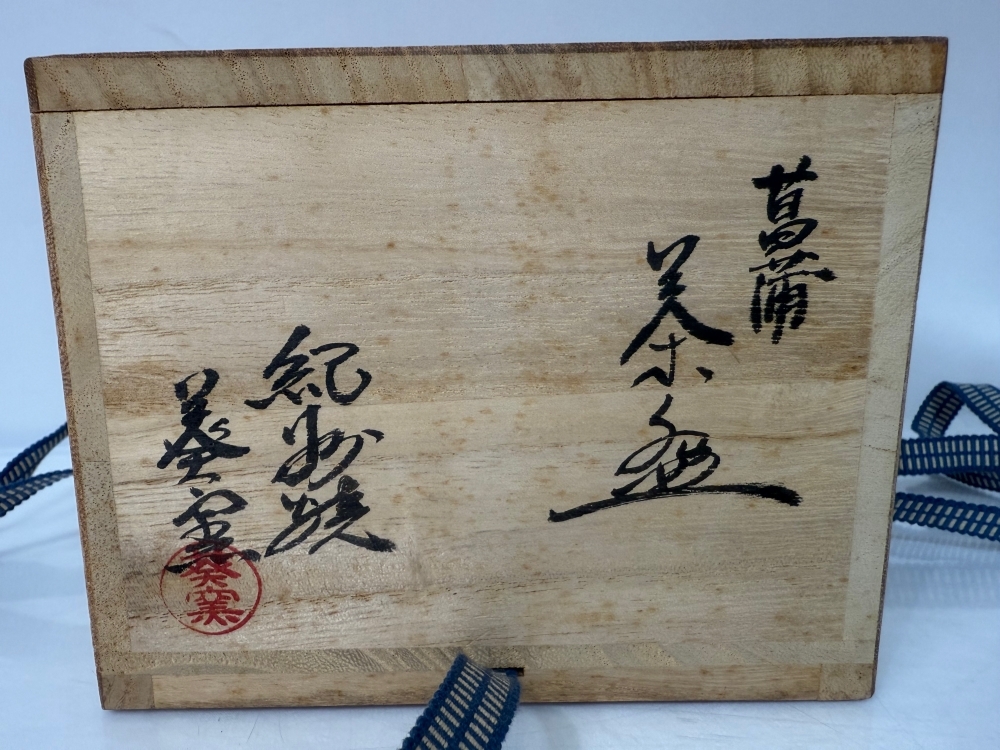 菖蒲
茶盌
紀州焼
葵窯
葵窯